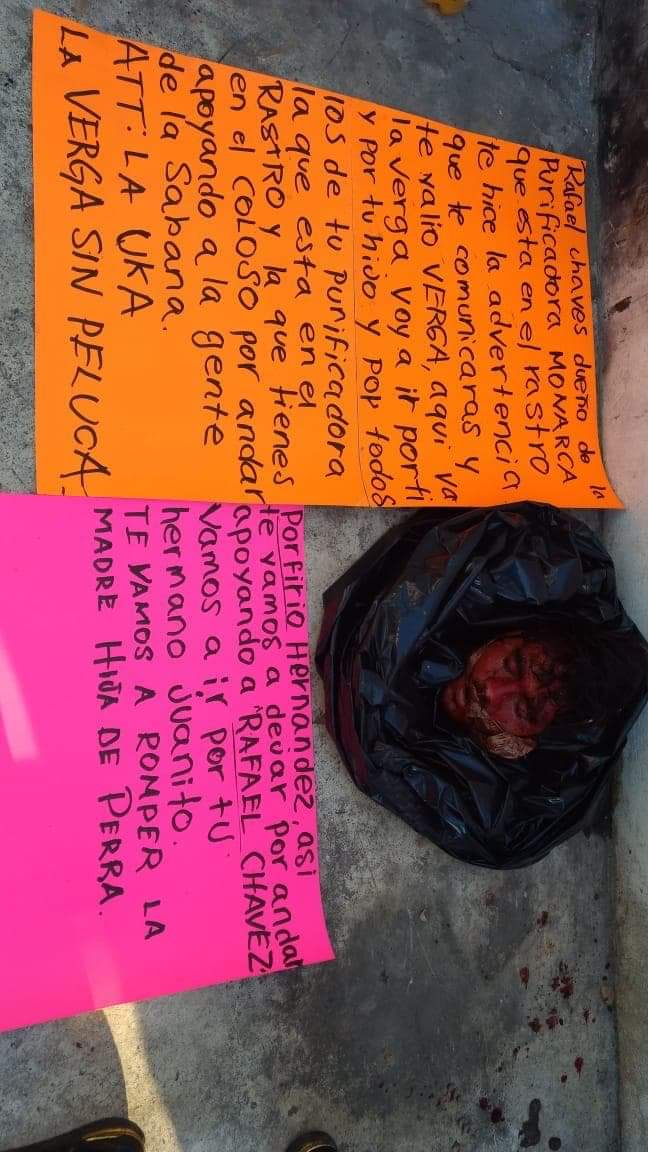 Rafael chaves dueño de la
Purificadora MONARCA
que esta en el rastro
te hice la advertencia
que te comunicaras y
te valio VERGA, aqui va
la verga voy a ir por ti
y por tu hijo y por todos
los de tu purificadora
la que esta en el
RASTRO y la que tienes
en el COLOSO por andar
apoyando a la gente
de la Sabana.
ATT: LA UKA
LA VERGA SIN PELUCA
Porfirio Hernandez, asi
te vamos a dejar por andar
apoyando a "RAFAEL CHAVEZ"
Vamos a ir por tu
hermano Juanito.
TE VAMOS A ROMPER LA
MADRE HIJA DE PERRA.